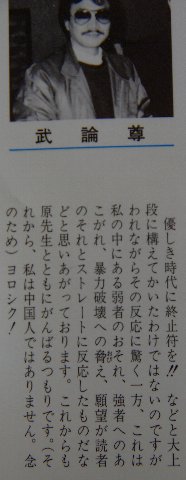 武論尊
優しき時代に終止符を!!などと大上
段に構えてかいたわけではないのですが
われながらその反応に驚く一方、これは
私の中にある弱者のおそれ、強者へのあ
こがれ、暴力破壊への脅え、願望が読者
のそれとストレートに反応したものだな
どと思いあがっております。これからも
原先生とともにがんばるつもりです。(そ
れから、私は中国人ではありません。念
のため)ヨロシク!